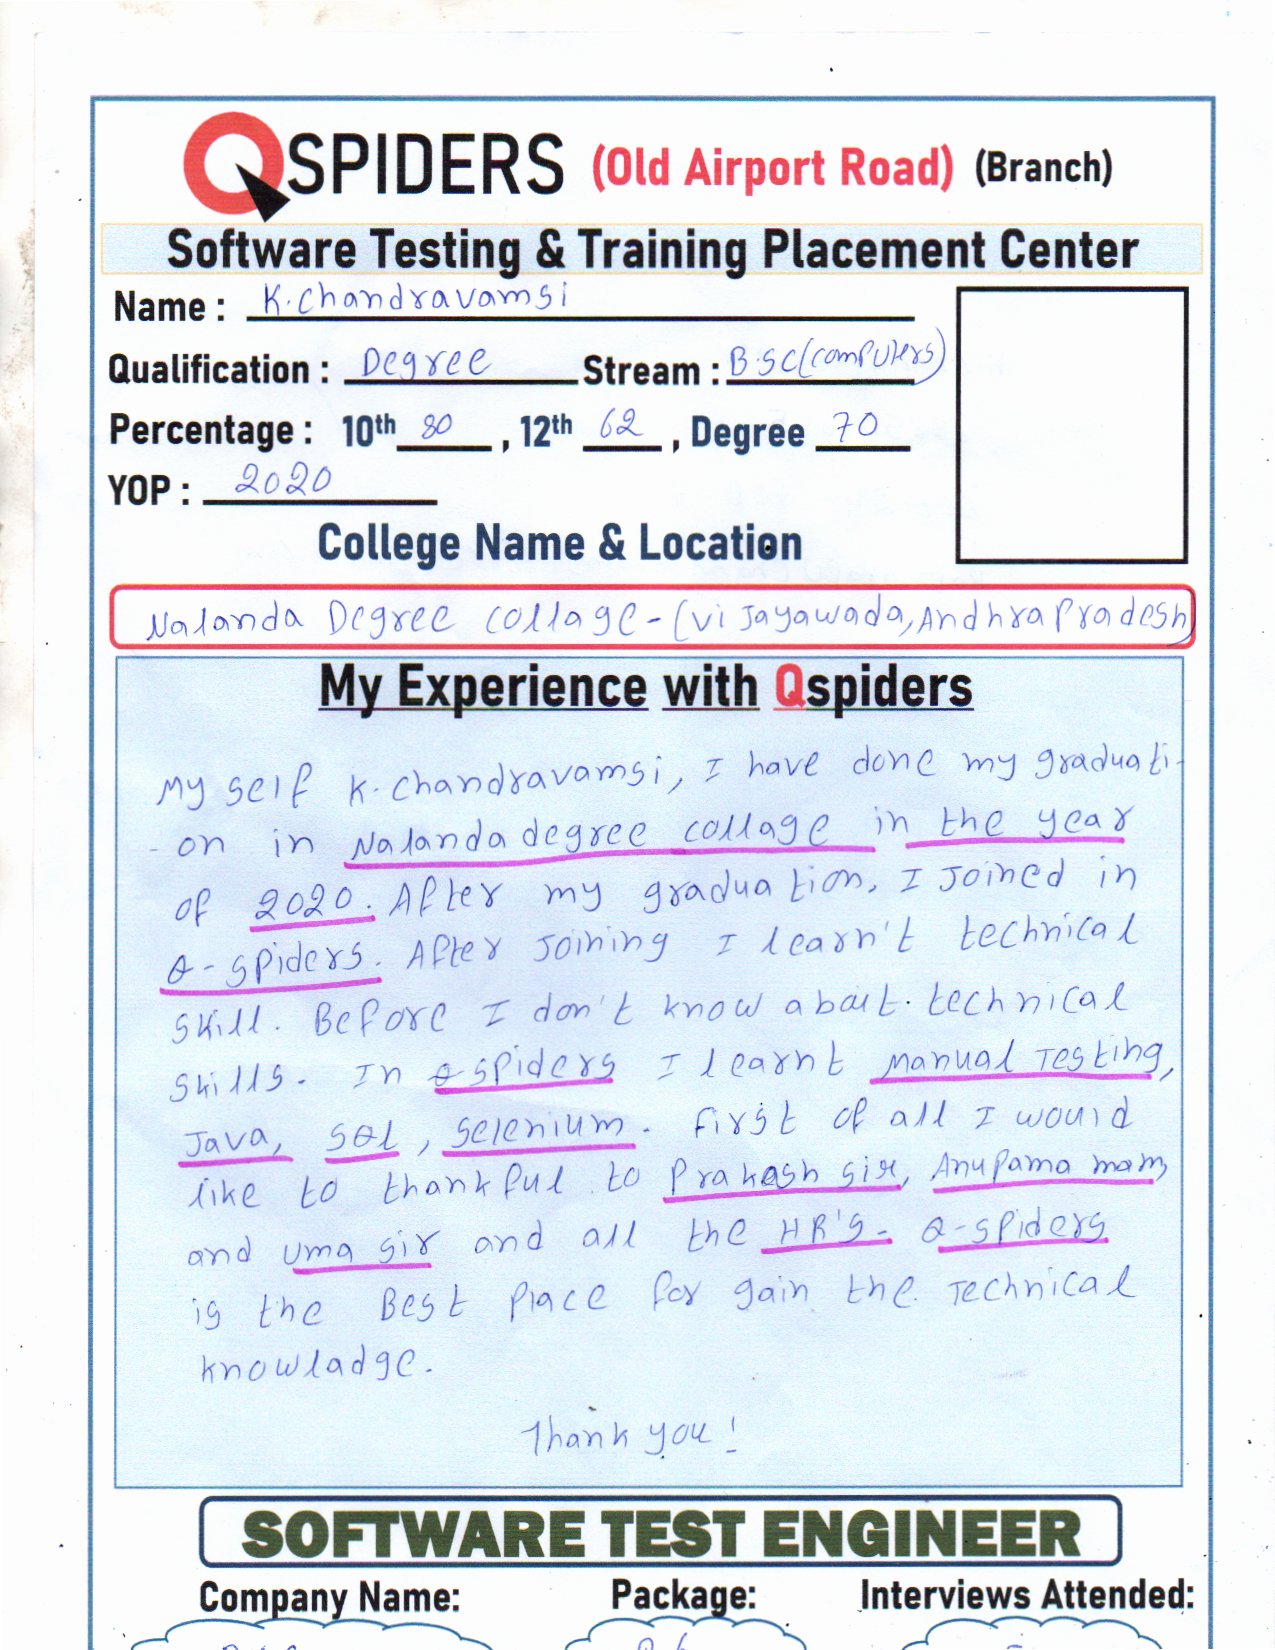 QSPIDERS (Old Airport Road) (Branch)
Software Testing & Training Placement Center
Name : K.Chandravamsi
Qualification : Degree Stream : B.SC(computers)
Percentage : 10th 80 , 12th 62 , Degree 70
YOP : 2020
College Name & Location
Nalanda Degree collage-(Vijayawada, Andhra Pradesh)
My Experience with Qspiders
My self K.Chandravamsi, I have done my graduati-
-on in Nalanda degree collage in the year
of 2020. After my graduation, I Joined in
Q-spiders. After Joining I learn't technical
skill. Before I don't know about technical
skills. In Qspiders I learnt Manual Testing,
Java, SQL, Selenium. First of all I would
like to thankful to Prakash sir, Anupama mam,
and Uma sir and all the HR's. Q-spiders
is the Best Place for gain the Technical
knowladge.
Thank you!
SOFTWARE TEST ENGINEER
Company Name: Package: Interviews Attended: